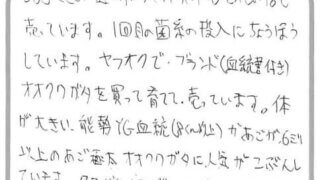 売っています。1回目の菌糸の投入にちょうほう
しています。ヤフオクで、ブランド(血統書付き)
オオクワガタを買って育てて、売ています。体
が大きい、能勢YG血統(8cm以上)かあごが、6ミリ
以上のあご極太オオクワガタに人気が二ぶんし
ています。